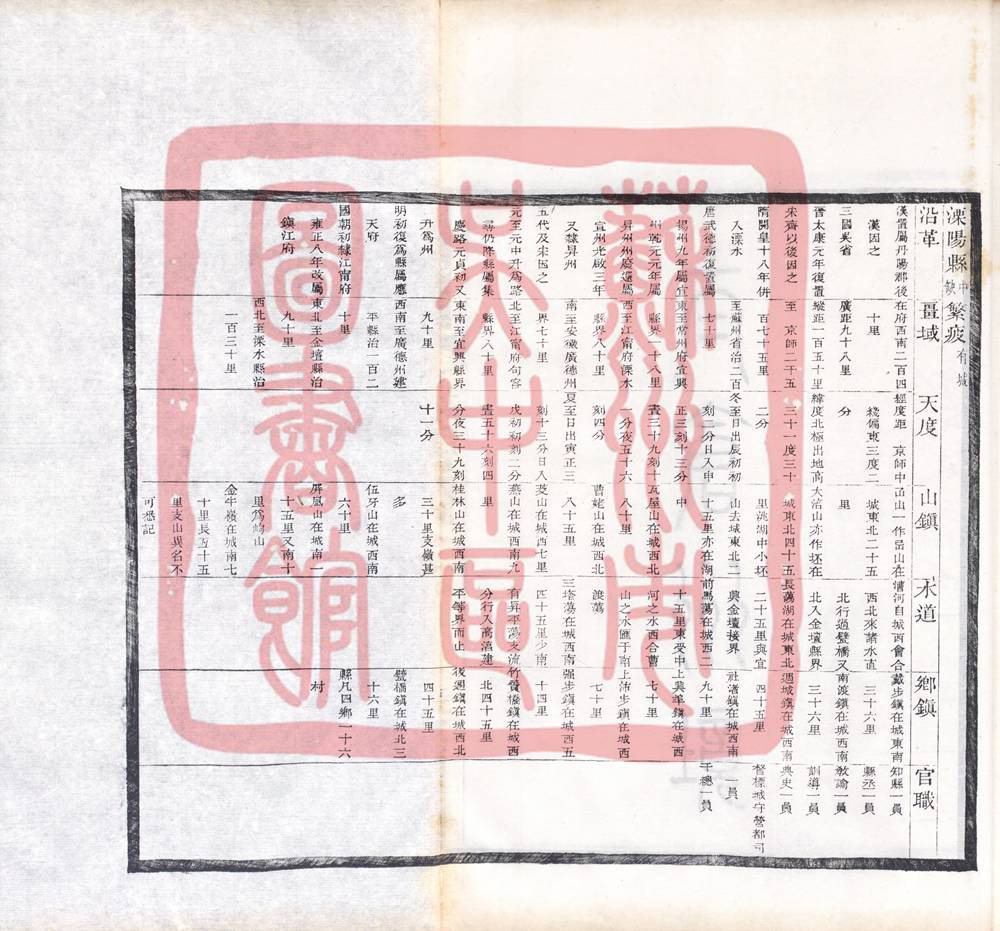 溧陽縣 中 缺 繁疲 有城
沿革
漢置屬丹陽郡後
漢因之
三國吳省
晉太康元年復置
宋齊以後因之
隋開皇十八年併
入溧水
唐武德初復置屬
揚州九年屬宣
州乾元元年屬
昇州州廢還屬
宣州光啟三年
又隸昇州
五代及宋因之
元至元中升爲路
尋仍降縣屬集
慶路元貞初又
升爲州
明初復爲縣屬應
天府
國朝初隸江甯府
雍正八年改屬
鎮江府
疆域
在府西南二百四
十里
廣距九十八里
縱距一百五十里
至 京師二千五
百七十五里
至蘇州省治二百
七十里
東至常州府宜興
縣界一十八里
西至江甯府溧水
縣界八十里
南至安徽廣德州
界七十里
北至江甯府句容
縣界八十里
東南至宜興縣界
九十里
西南至廣德州建
平縣治一百二
十里
東北至金壇縣治
九十里
西北至溧水縣治
一百三十里
天度
經度距 京師中
綫偏東三度二
分
緯度北極出地高
三十一度三十
二分
冬至日出辰初初
刻二分日入申
正三刻十三分
晝三十九刻十
一分夜五十六
刻四分
夏至日出寅正三
刻十三分日入
戌初初刻二分
晝五十六刻四
分夜三十九刻
十一分
山鎮
山一作岊山在
城東北二十五
里
大山亦作坯在
城東北四十五
里洮湖中小坯
山去城東北二
十五里亦在湖
中
瓦屋山在城西北
八十里
曹姥山在城西北
八十五里
山在城西七
里
燕山在城西南九
里
桂林山在城西南
三十里支嶺甚
多
伍牙山在城西南
六十里
屏風山在城南一
十五里又南十
里爲山
金牛嶺在城南七
十里長五十五
里支山異名不
可悉記
水道
漕河自城西會合
西北來諸水直
北行過甓橋又
北入金壇縣界
長蕩湖在城東北
二十五里與宜
興金壇接界
前馬蕩在城西二
十五里東受中
河之水西合曹
山之水匯于南
渡蕩
三塔蕩在城西南
四十五里少南
有昇平蕩支流
分行入高湻建
平等界而止
鄉鎮
戴步鎮在城東南
三十六里
南渡鎮在城西南
三十六里
週城鎮在城西南
四十五里
社渚鎮在城西南
九十里
上興鎮在城西
七十里
上沛步鎮在城西
七十里
强步鎮在城西五
十四里
竹簀橋鎮在城西
北四十五里
後週鎮在城西北
四十五里
甓橋鎮在城北三
十六里
縣凡四鄉一十六
村
官職
知縣一員
縣丞一員
敎諭一員
訓導一員
典史一員
督標城守營都司
一員
千總一員
蘇州市
吳中區
圖書館